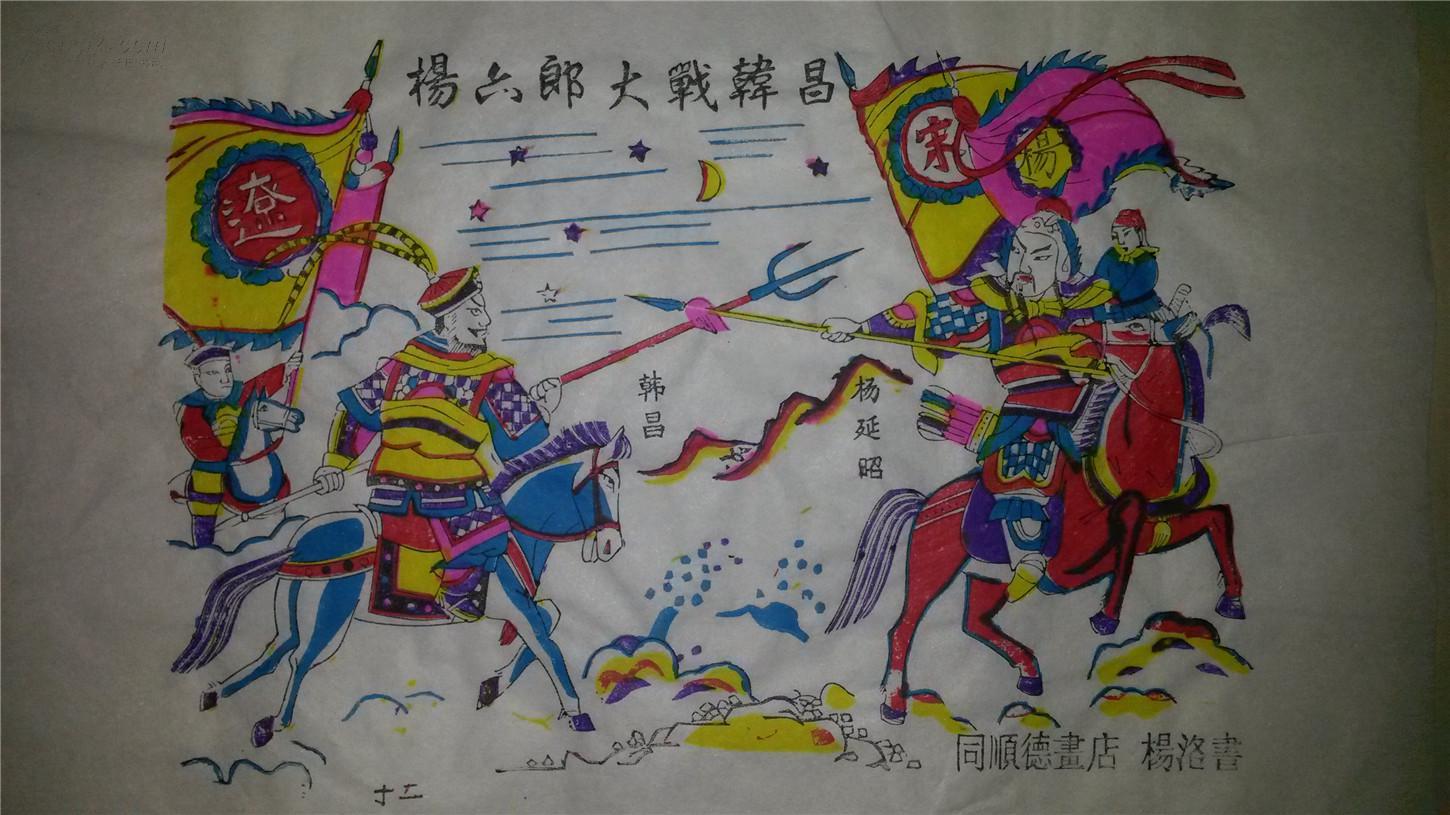 楊六郎大戰韓昌
遼
宋
楊
韩昌
杨延昭
同順德畫店 楊洛書
十二